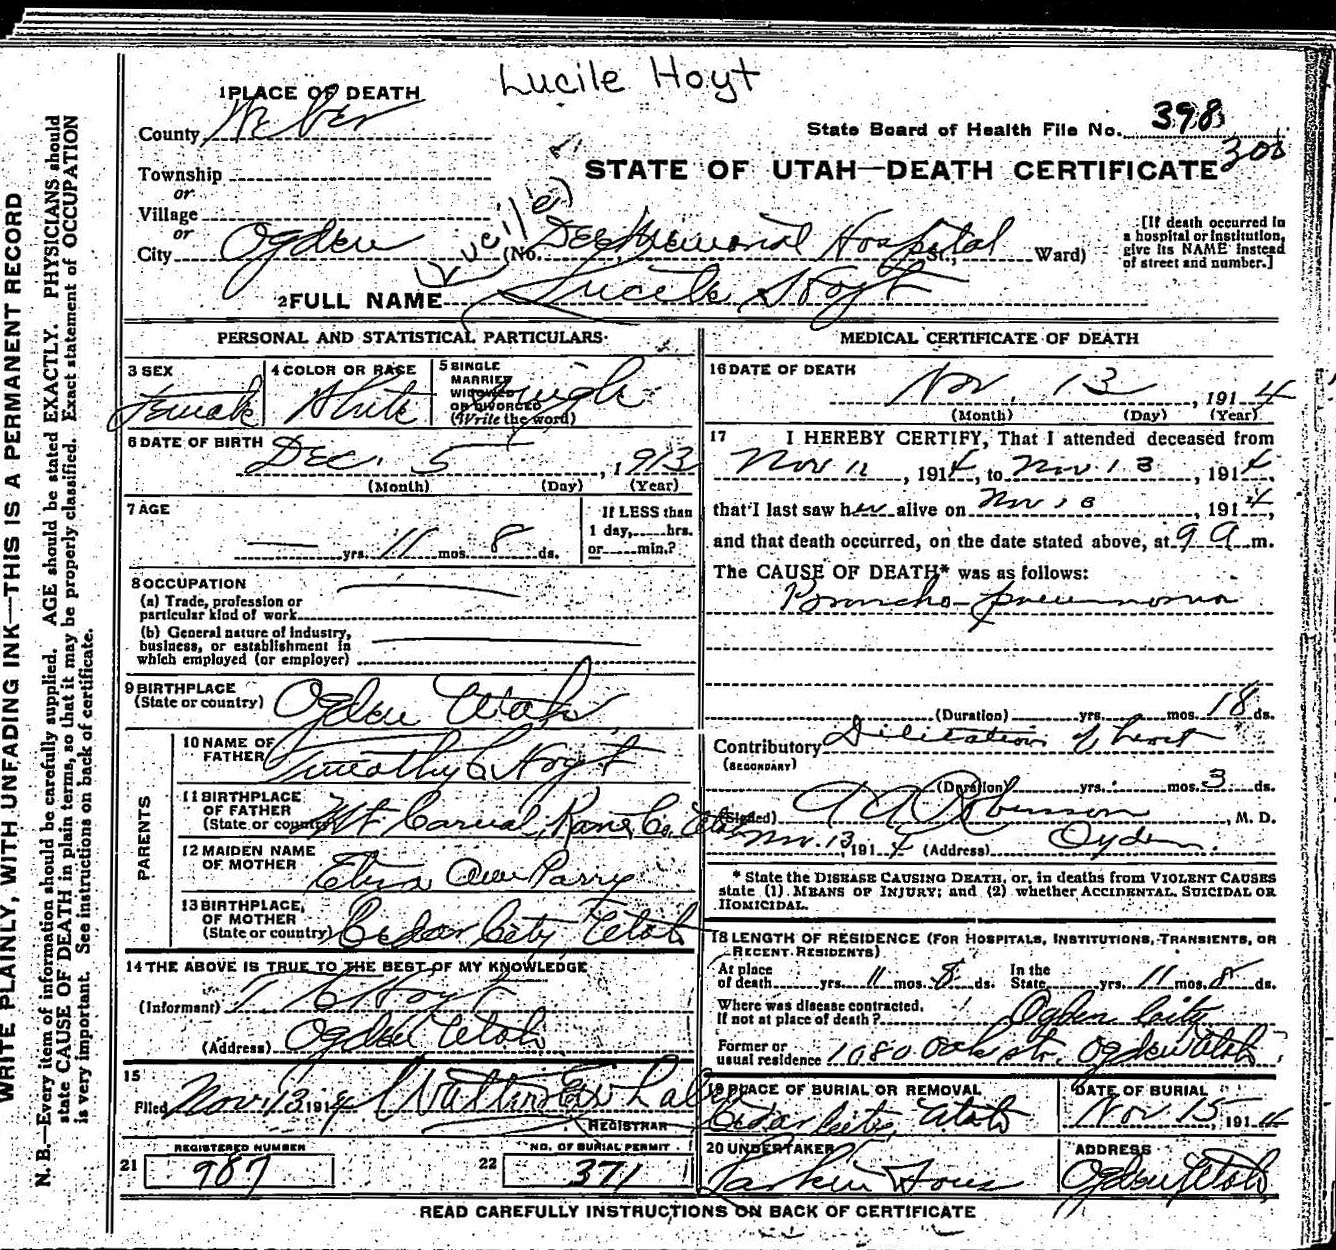 Lucile Hoyt
1 PLACE OF DEATH
County Weber
State Board of Health File No. 398
300
Township
or
STATE OF UTAH—DEATH CERTIFICATE
Village
or
(Lucile)
City Ogden (No. Dee Memorial Hospital St.; Ward)
[If death occurred in a hospital or institution, give its NAME instead of street and number.]
2 FULL NAME Lucile Hoyt
PERSONAL AND STATISTICAL PARTICULARS
3 SEX Female
4 COLOR OR RACE White
5 SINGLE MARRIED WIDOWED OR DIVORCED (Write the word) Single
6 DATE OF BIRTH Dec. 5, 1913
(Month) (Day) (Year)
7 AGE — yrs. 11 mos. 8 ds.
If LESS than 1 day, hrs. or min.?
8 OCCUPATION
(a) Trade, profession or particular kind of work
(b) General nature of industry, business, or establishment in which employed (or employer)
9 BIRTHPLACE (State or country) Ogden Utah
PARENTS
10 NAME OF FATHER Timothy C Hoyt
11 BIRTHPLACE OF FATHER (State or country) Mt. Carmel, Kane Co. Utah
12 MAIDEN NAME OF MOTHER Eliza Ann Parry
13 BIRTHPLACE OF MOTHER (State or country) Cedar City Utah
14 THE ABOVE IS TRUE TO THE BEST OF MY KNOWLEDGE
(Informant) T C Hoyt
(Address) Ogden Utah
15
Filed Nov. 13 1914
REGISTRAR
21 REGISTERED NUMBER 987
22 NO. OF BURIAL PERMIT 371
MEDICAL CERTIFICATE OF DEATH
16 DATE OF DEATH
Nov. 13, 1914
(Month) (Day) (Year)
17 I HEREBY CERTIFY, That I attended deceased from
Nov 11, 1914, to Nov. 13, 1914,
that I last saw her alive on Nov 13, 1914,
and that death occurred, on the date stated above, at 9 a m.
The CAUSE OF DEATH* was as follows:
Broncho-pneumonia
(Duration) yrs. mos. 18 ds.
Contributory Dilitation of heart
(SECONDARY)
(Duration) yrs. mos. 3 ds.
(Signed) Robinson, M. D.
Nov. 13, 1914 (Address) Ogden
* State the DISEASE CAUSING DEATH, or, in deaths from VIOLENT CAUSES
state (1) MEANS OF INJURY; and (2) whether ACCIDENTAL, SUICIDAL OR
HOMICIDAL.
18 LENGTH OF RESIDENCE (FOR HOSPITALS, INSTITUTIONS, TRANSIENTS, OR
RECENT RESIDENTS)
At place of death yrs. 11 mos. 8 ds. In the State yrs. 11 mos. 8 ds.
Where was disease contracted, If not at place of death? Ogden City
Former or usual residence 1080 Oak str. Ogden Utah
19 PLACE OF BURIAL OR REMOVAL Cedar City, Utah
DATE OF BURIAL Nov. 15, 1914
20 UNDERTAKER Larkin Sons
ADDRESS Ogden Utah
READ CAREFULLY INSTRUCTIONS ON BACK OF CERTIFICATE
WRITE PLAINLY, WITH UNFADING INK—THIS IS A PERMANENT RECORD
N. B.—Every item of information should be carefully supplied. AGE should be stated EXACTLY. PHYSICIANS should
state CAUSE OF DEATH in plain terms, so that it may be properly classified. Exact statement of OCCUPATION
is very important. See instructions on back of certificate.